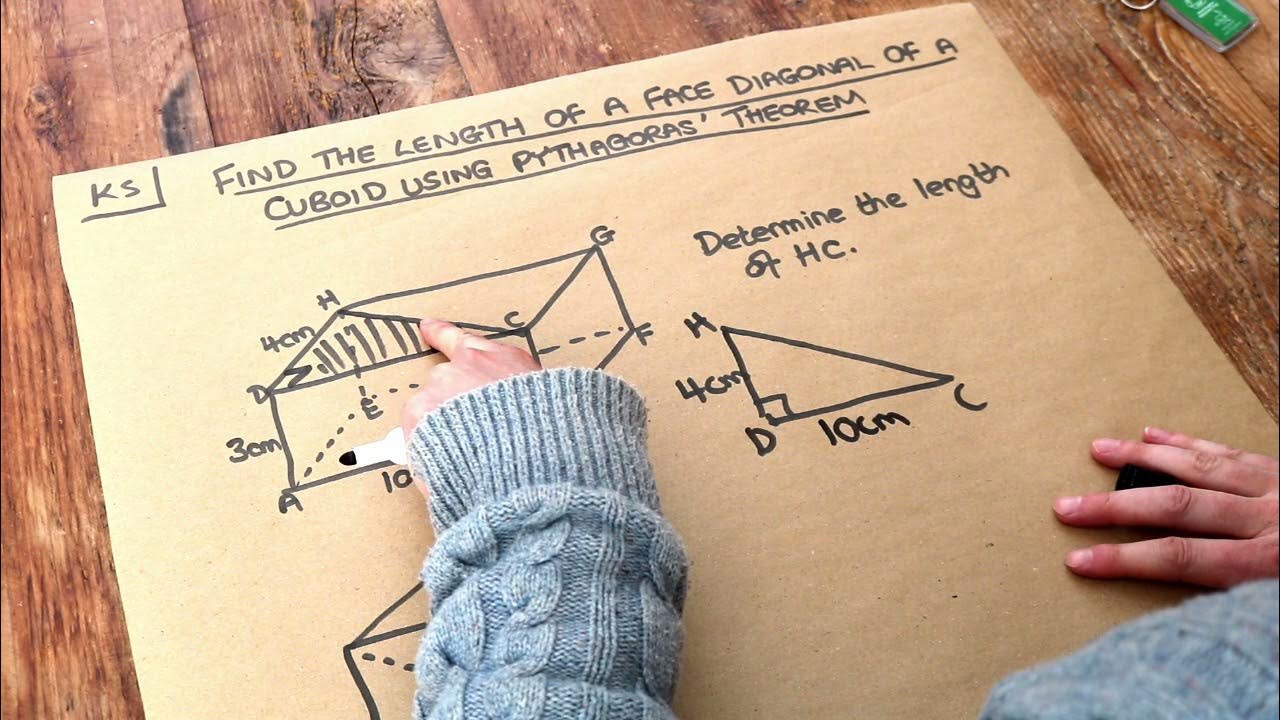 KS
FIND THE LENGTH OF A FACE DIAGONAL OF A
CUBOID USING PYTHAGORAS' THEOREM
Determine the length
of HC.
G
H
4cm
C
F
D
E
3cm
10
A
H
4cm
D
10cm
C